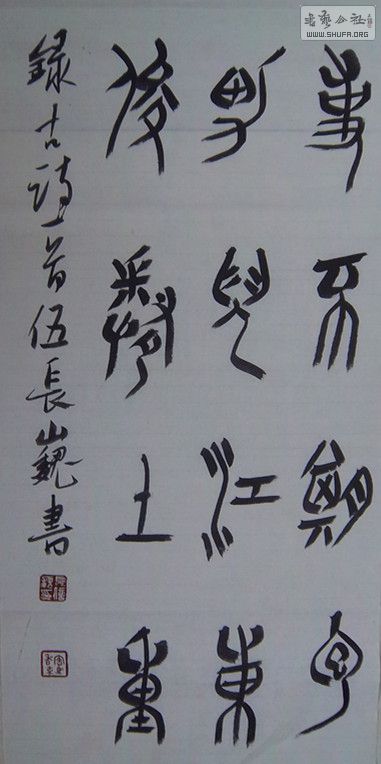 書藝公社
WWW.SHUFA.ORG
事不期包
男兒江東
俊卷土重
錄古詩一首伍長山魏書